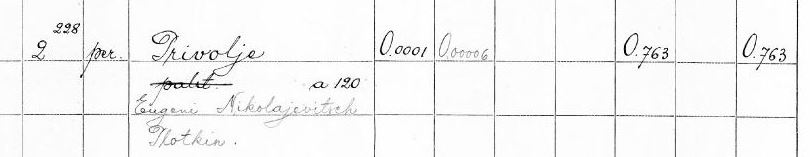 2 228 per. Privolje 0.0001 0.00006 0.763 0.763
palst. a 120
Eugeni Nikolajevitsch
Plotkin.